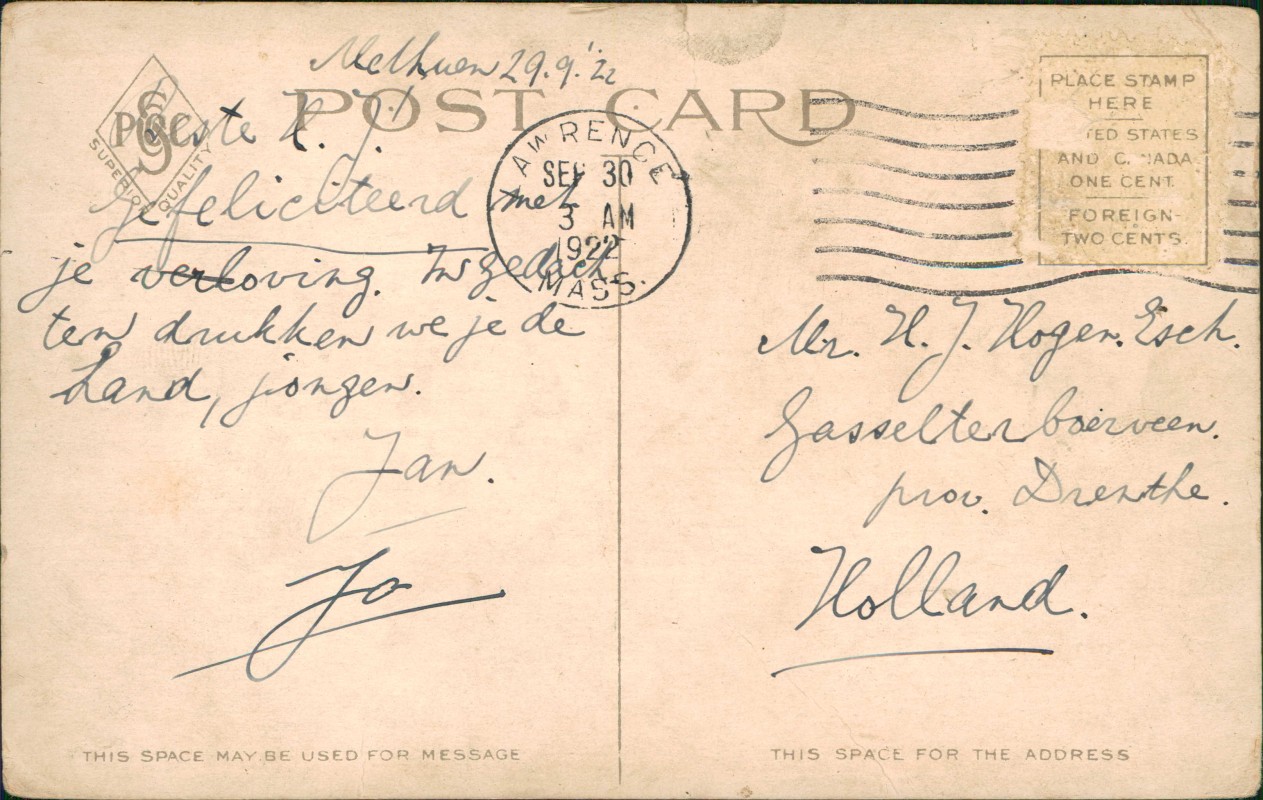 Methuen 29.9.'22
POST CARD
SUPERIOR QUALITY
Beste H. J.!
Gefeliciteerd met
je verloving. In gedach
ten drukken we je de
hand, jongen.
Jan.
Jo
THIS SPACE MAY BE USED FOR MESSAGE
LAWRENCE
SEP 30
3 AM
1922
MASS.
PLACE STAMP
HERE
STATES
AND CANADA
ONE CENT
FOREIGN-
TWO CENTS.
Mr. H. J. Hogen. Esch.
Gasselterboerveen.
prov. Drenthe.
Holland.
THIS SPACE FOR THE ADDRESS